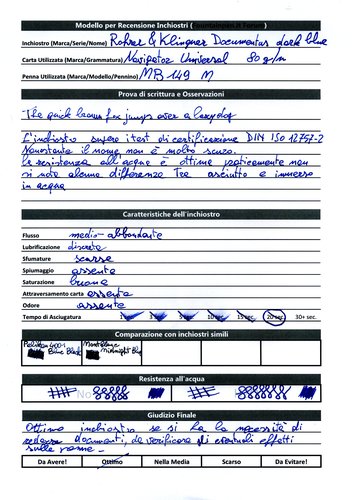 Modello per Recensione Inchiostri (fountainpen.it Forum)
Inchiostro (Marca/Serie/Nome) Rohrer & Klingner Documentus dark blue
Carta Utilizzata (Marca/Grammatura) Navigator Universal 80 g/m
Penna Utilizzata (Marca/Modello/Pennino) MB 149 M
Prova di scrittura e Osservazioni
The quick brown fox jumps over a lazy dog
L'inchiostro supera i test di certificazione DIN ISO 12757-2
Nonostante il nome non è molto scuro.
la resistenza all'acqua è ottima praticamente non
si nota alcuna differenza tra asciutto e immerso
in acqua
Caratteristiche dell'inchiostro
Flusso medio-abbondante
Lubrificazione discreta
Sfumature scarse
Spiumaggio assente
Saturazione buona
Attraversamento carta assente
Odore assente
Tempo di Asciugatura 1 sec. 5 sec. 10 sec. 15 sec. 20 sec. 30+ sec.
Comparazione con inchiostri simili
Pelikan 4001 Blue Black
Montblanc Midnight Blue
Resistenza all'acqua
Giudizio Finale
Ottimo inchiostro se si ha la necessità di
redarre documenti, da verificare gli eventuali effetti
sulle penne.
Da Avere! Ottimo Nella Media Scarso Da Evitare!